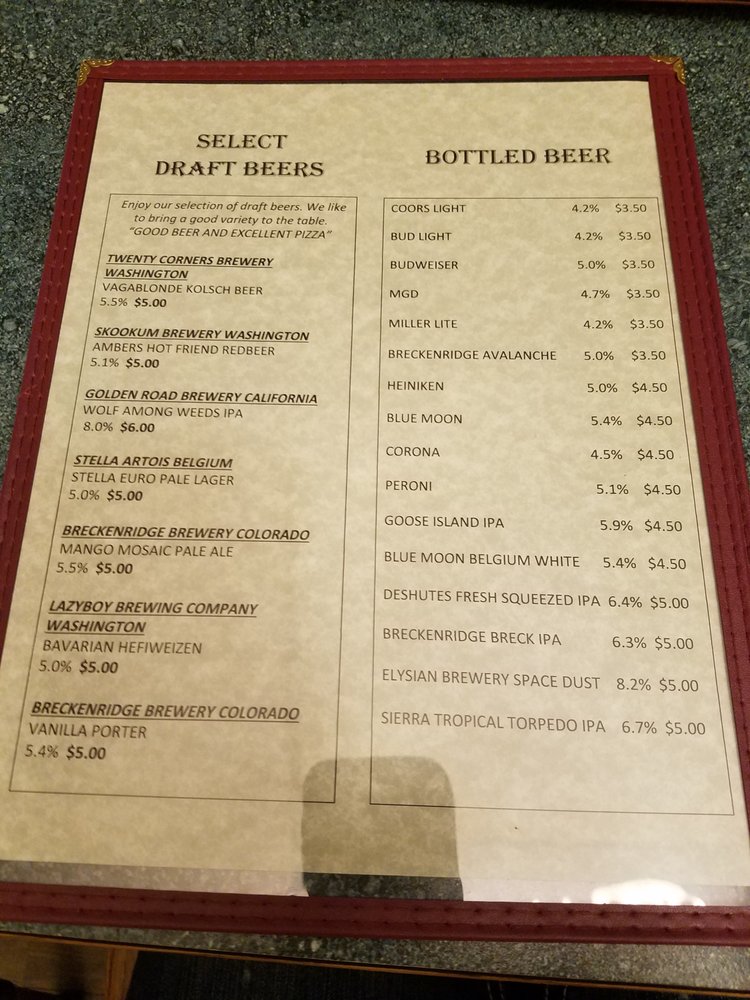 SELECT
DRAFT BEERS
Enjoy our selection of draft beers. We like
to bring a good variety to the table.
"GOOD BEER AND EXCELLENT PIZZA"
TWENTY CORNERS BREWERY
WASHINGTON
VAGABLONDE KOLSCH BEER
5.5% $5.00
SKOOKUM BREWERY WASHINGTON
AMBERS HOT FRIEND REDBEER
5.1% $5.00
GOLDEN ROAD BREWERY CALIFORNIA
WOLF AMONG WEEDS IPA
8.0% $6.00
STELLA ARTOIS BELGIUM
STELLA EURO PALE LAGER
5.0% $5.00
BRECKENRIDGE BREWERY COLORADO
MANGO MOSAIC PALE ALE
5.5% $5.00
LAZYBOY BREWING COMPANY
WASHINGTON
BAVARIAN HEFIWEIZEN
5.0% $5.00
BRECKENRIDGE BREWERY COLORADO
VANILLA PORTER
5.4% $5.00
BOTTLED BEER
COORS LIGHT 4.2% $3.50
BUD LIGHT 4.2% $3.50
BUDWEISER 5.0% $3.50
MGD 4.7% $3.50
MILLER LITE 4.2% $3.50
BRECKENRIDGE AVALANCHE 5.0% $3.50
HEINIKEN 5.0% $4.50
BLUE MOON 5.4% $4.50
CORONA 4.5% $4.50
PERONI 5.1% $4.50
GOOSE ISLAND IPA 5.9% $4.50
BLUE MOON BELGIUM WHITE 5.4% $4.50
DESHUTES FRESH SQUEEZED IPA 6.4% $5.00
BRECKENRIDGE BRECK IPA 6.3% $5.00
ELYSIAN BREWERY SPACE DUST 8.2% $5.00
SIERRA TROPICAL TORPEDO IPA 6.7% $5.00